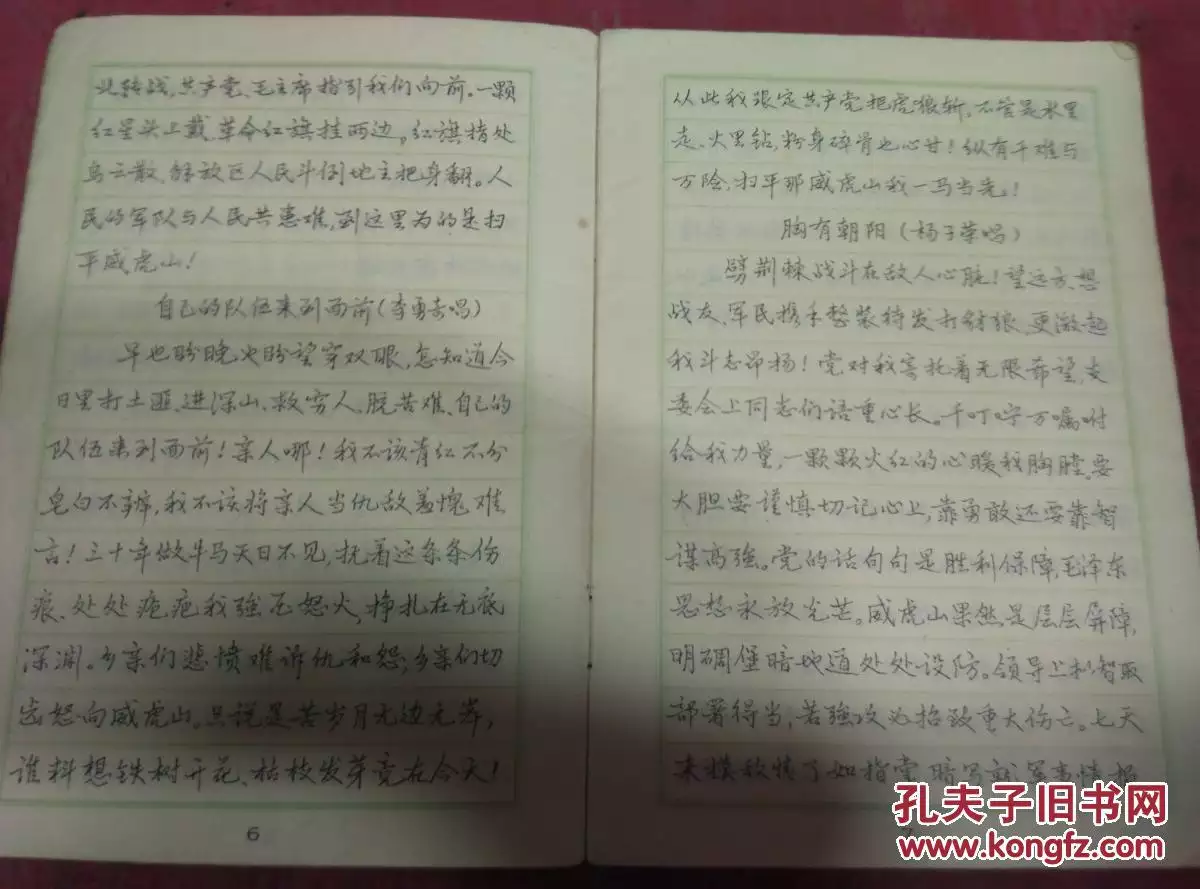 北转战,共产党、毛主席指引我们向前。一颗
红星头上戴,革命红旗挂两边。红旗指处
乌云散,解放区人民斗倒地主把身翻。人
民的军队与人民共患难,到这里为的是扫
平威虎山!
自己的队伍来到面前(李勇奇唱)
早也盼晚也盼望穿双眼,怎知道今
日里打土匪、进深山、救穷人、脱苦难、自己的
队伍来到面前!亲人哪!我不该青红不分
皂白不辨,我不该将亲人当仇敌羞愧难
言!三十年做牛马天日不见,抚着这条条伤
痕、处处疮疤我强压怒火,挣扎在无底
深渊。乡亲们悲愤难诉仇和怨;乡亲们切
齿怒向威虎山。只说是苦岁月无边无岸,
谁料想铁树开花、枯枝发芽竟在今天!
6
从此我跟定共产党把虎狼斩。不管是水里
走、火里钻,粉身碎骨也心甘!纵有千难与
万险、扫平那威虎山我一马当先!
胸有朝阳(杨子荣唱)
劈荆棘战斗在敌人心脏!望远方、想
战友、军民携手整装待发打豺狼、更激起
我斗志昂扬!党对我寄托着无限希望,支
委会上同志们语重心长。千叮咛万嘱咐
给我力量,一颗颗火红的心暖我胸膛。要
大胆要谨慎切记心上,靠勇敢还要靠智
谋高強。党的话句句是胜利保障,毛泽东
思想永放光芒。威虎山果然是层层屏障,
明碉堡暗地道处处设防。领导上拟智取
部署得当,若強攻必招致重大伤亡。七天
来摸敌情了如指 暗写就军事情报
7
孔夫子旧书网
www.kongfz.com